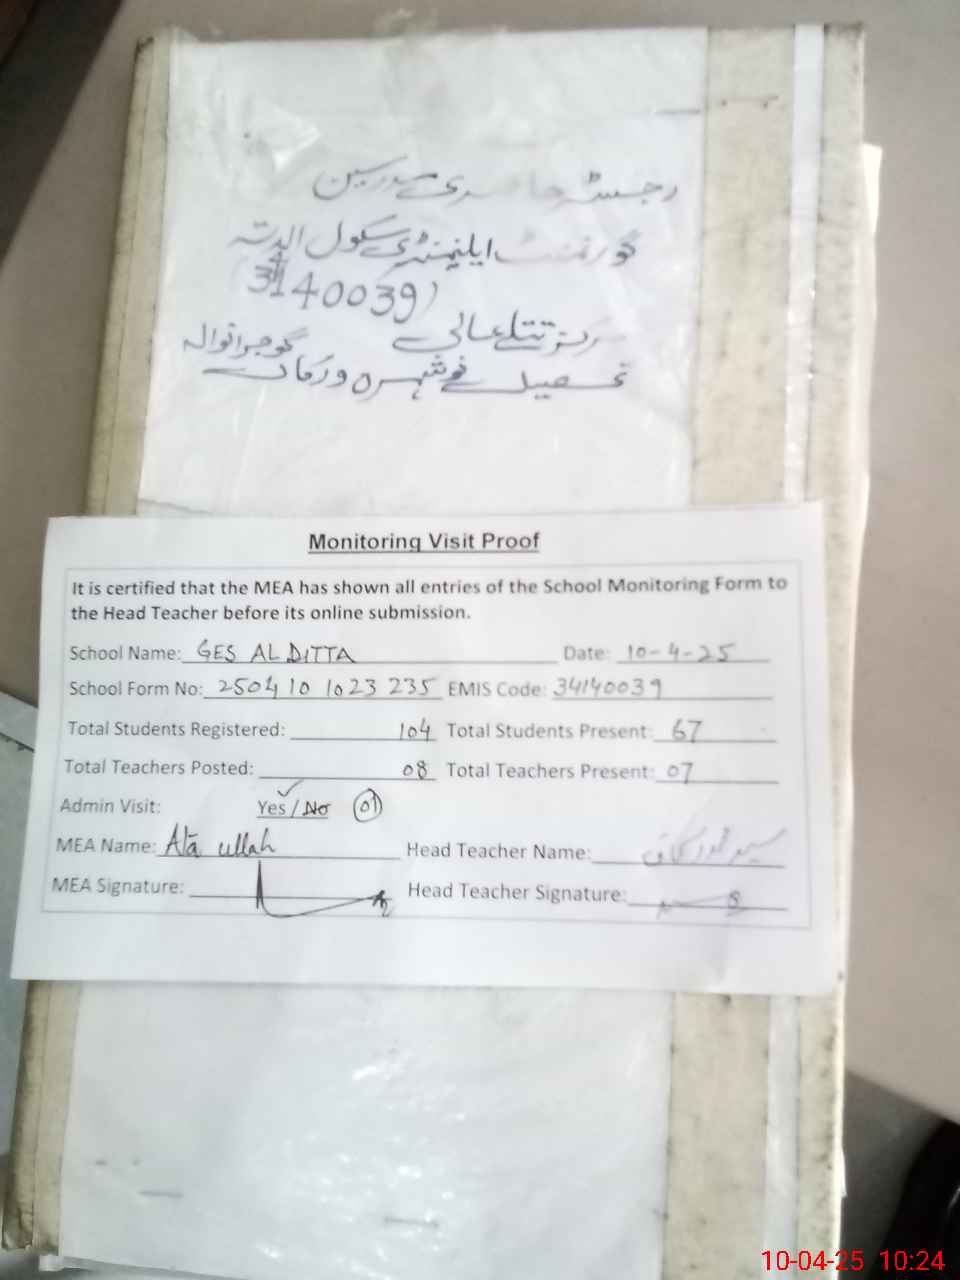 رجسٹر حاضری مدرسین
گورنمنٹ ایلیمنٹری سکول الدتہ
(34140039)
مرکز تتلے عالی
تحصیل نوشہرہ ورکاں گوجرانوالہ
Monitoring Visit Proof
It is certified that the MEA has shown all entries of the School Monitoring Form to
the Head Teacher before its online submission.
School Name: GES AL DITTA Date: 10-4-25
School Form No: 2504 10 1023 235 EMIS Code: 34140039
Total Students Registered: 104 Total Students Present: 67
Total Teachers Posted: 08 Total Teachers Present: 07
Admin Visit: Yes / No 01
MEA Name: Ata ullah Head Teacher Name:
MEA Signature: Head Teacher Signature:
10-04-25 10:24